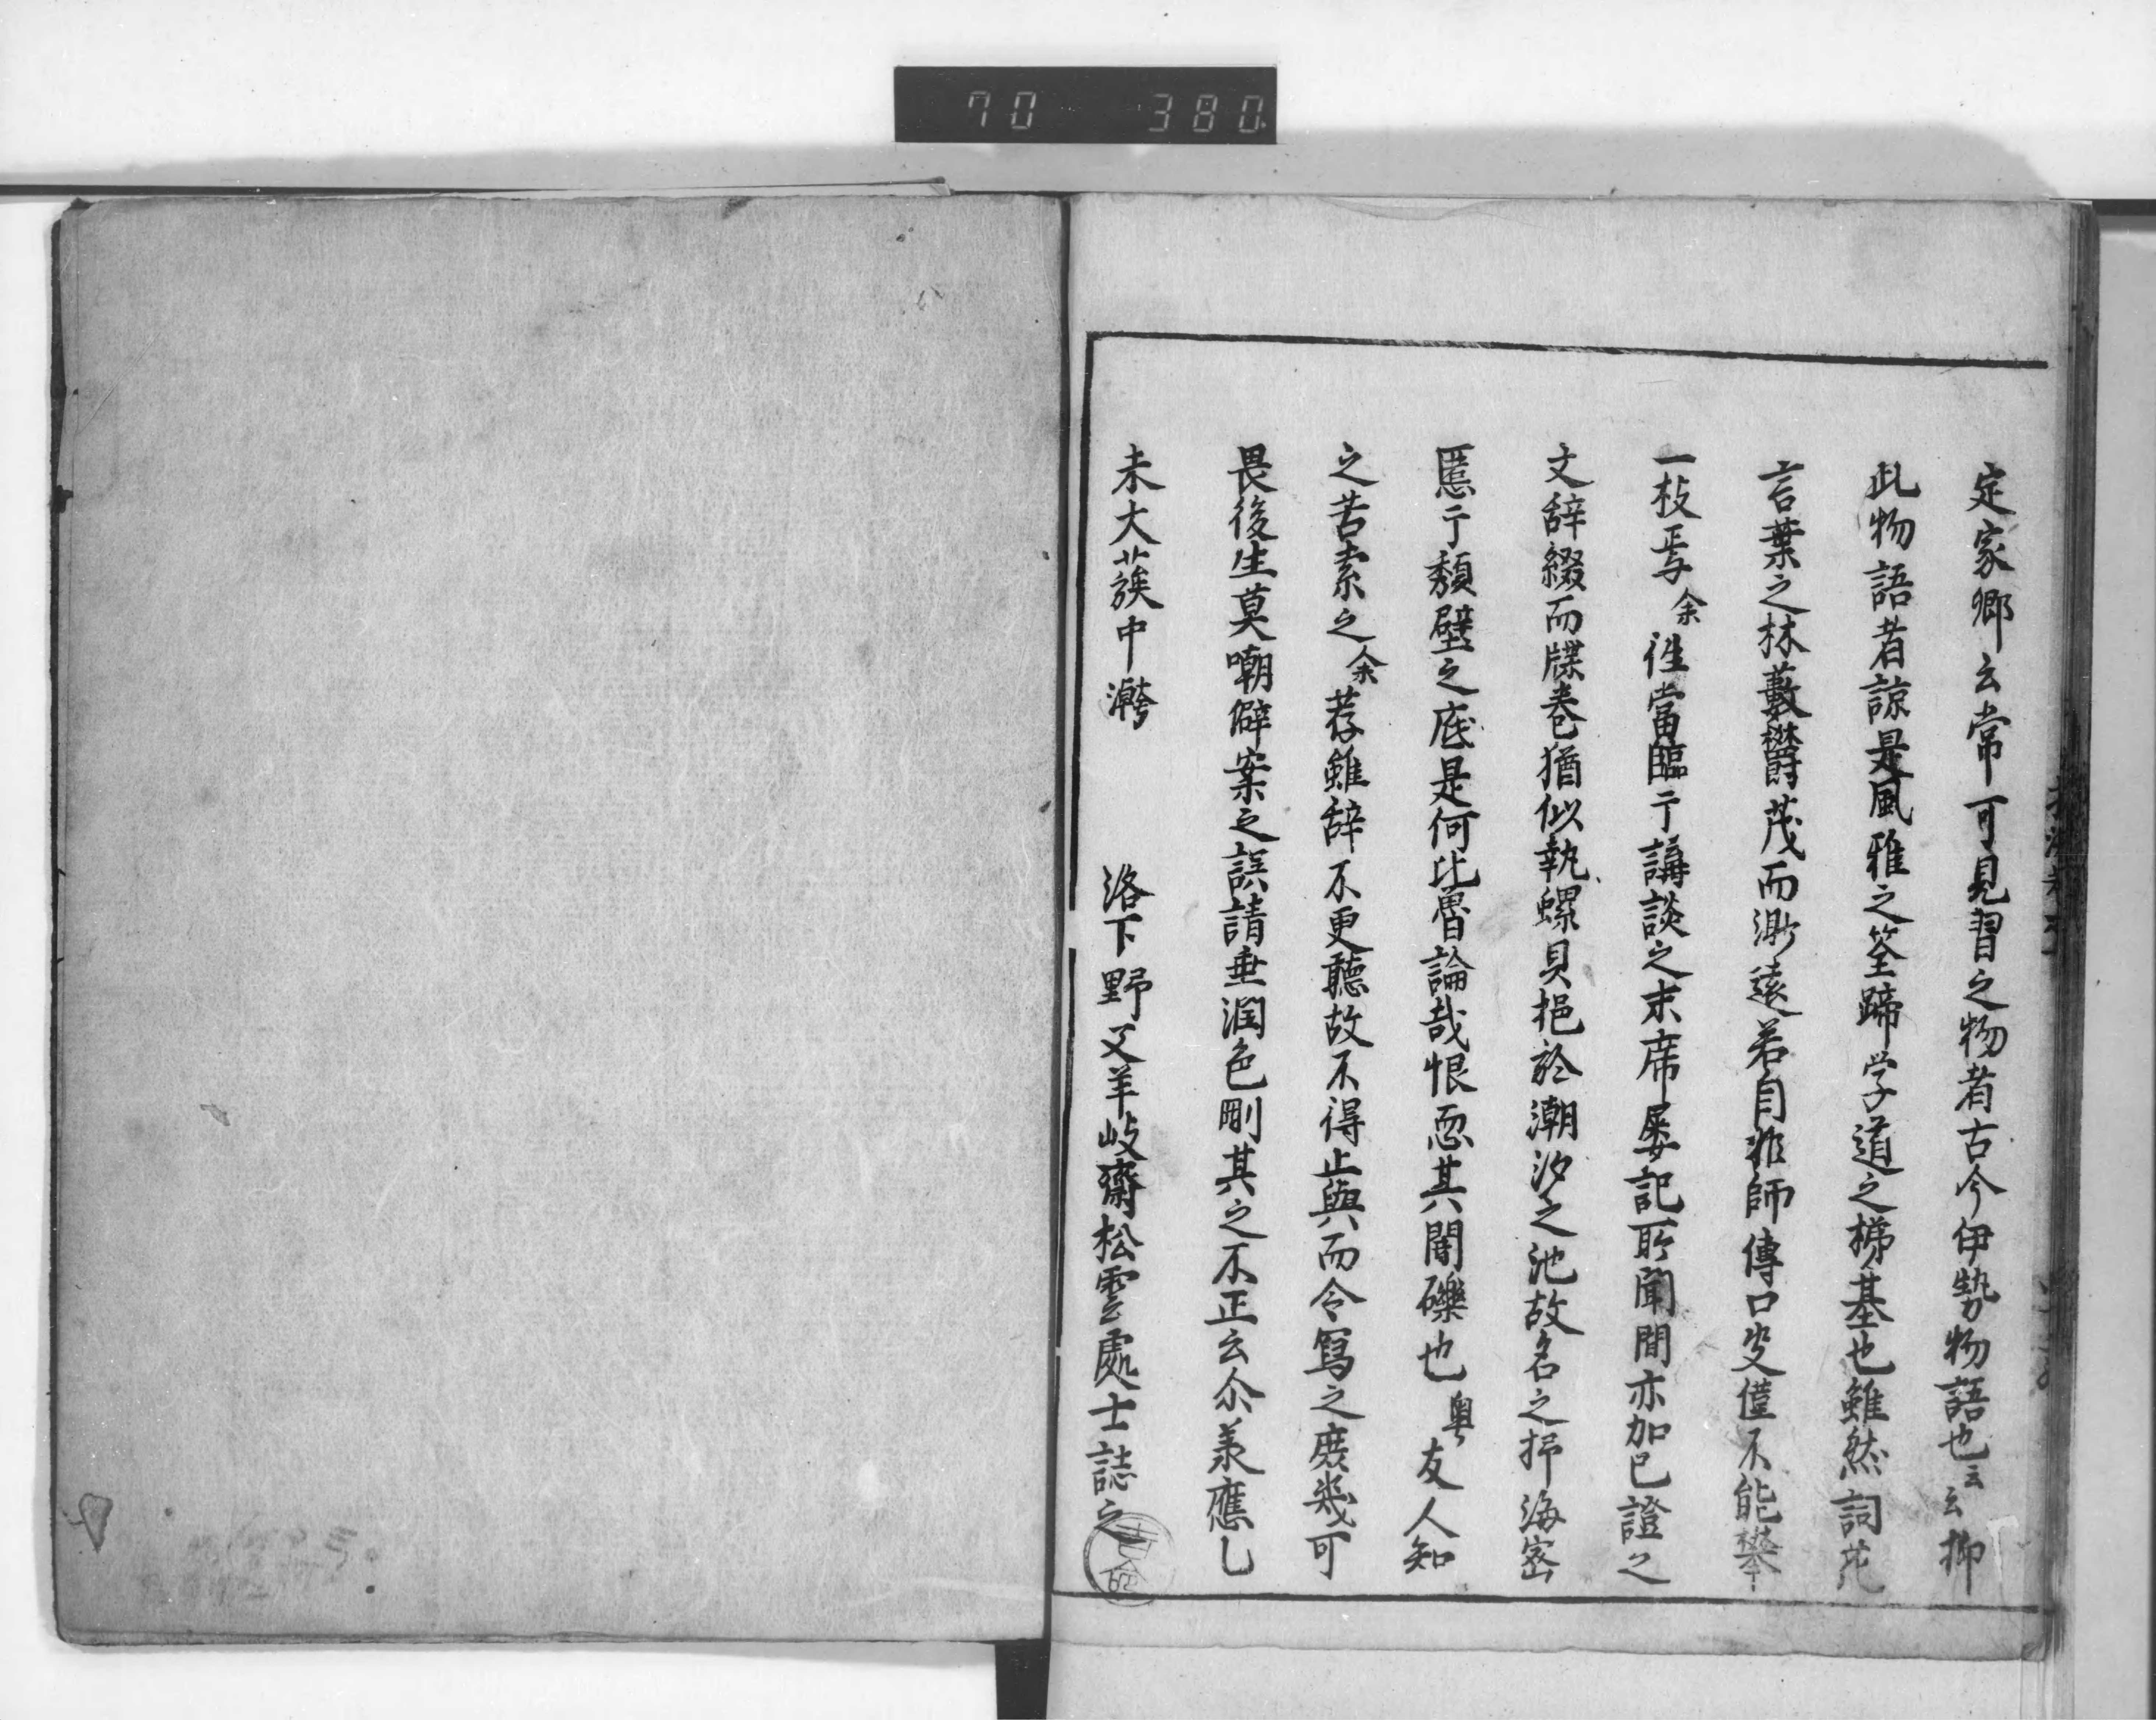 70 380
定家卿云常可見習之物者古今伊勢物語也云云抑
此物語者諒是風雅之筌蹄学道之梯基也雖然詞花
言葉之林藪欝茂而渺遠若自非師傳口史僅不能攀
一枝焉余徃當臨于講談之末席屡記所聞間亦加巳證之
文辞綴而牒卷猶似執螺貝挹於潮汐之池故名之抒海密
慝于頽壁之底是何比魯論哉恨恧其闇礫也粤友人知
之苦索之余荐雖辞不更聽故不得止與而令寫之庶幾可
畏後生莫嘲僻案之誤請垂潤色剛其之不正云尒羕應乚
未大蔟中澣 洛下野父羊岐齋松雲處士誌之